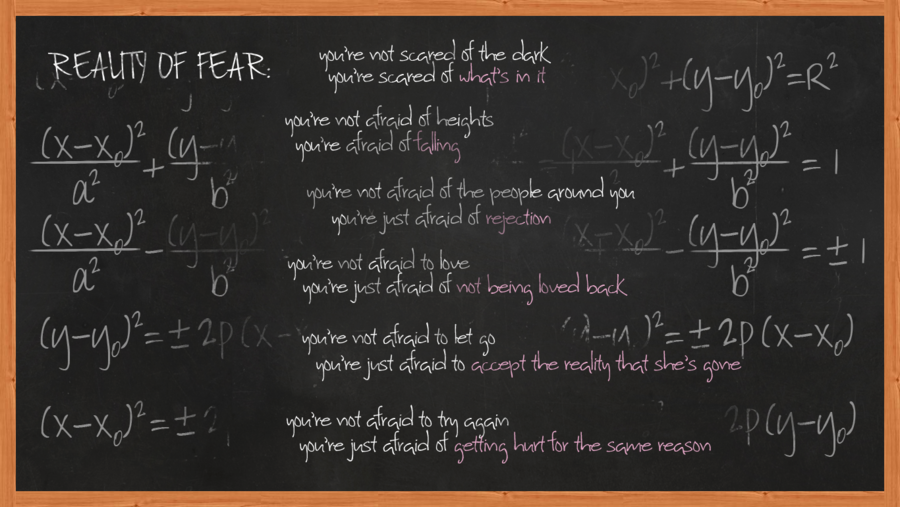 REALITY OF FEAR:
you're not scared of the dark
you're scared of what's in it
you're not afraid of heights
you're afraid of falling
you're not afraid of the people around you
you're just afraid of rejection
you're not afraid to love
you're just afraid of not being loved back
you're not afraid to let go
you're just afraid to accept the reality that she's gone
you're not afraid to try again
you're just afraid of getting hurt for the same reason
(x−x₀)²/a² + (y−
b²
(x−x₀)²/a² − (y−y₀)²/b²
(y−y₀)²=±2p(x−
(x−x₀)²=±2
x₀)²+(y−y₀)²=R²
(x−x₀)² + (y−y₀)²/b² = 1
(x−x₀)² − (y−y₀)²/b² = ±1
)²=±2p(x−x₀)
2p(y−y₀)